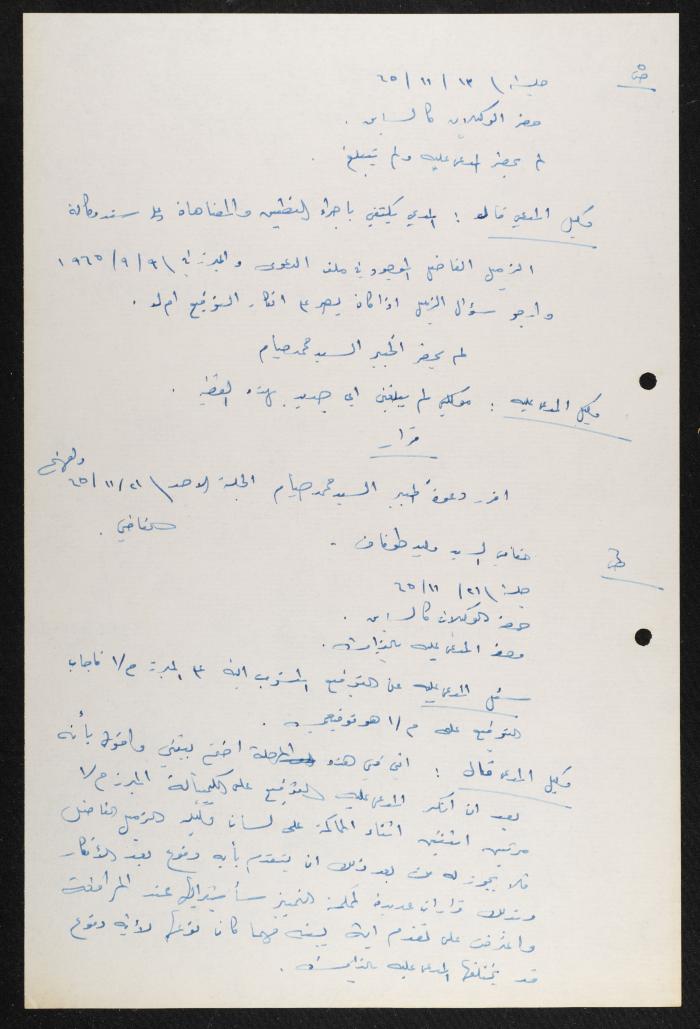 ص٥
جلسة \ ١٣ / ١١ / ٦٥
حضر الوكيلان كالسابق .
لم يحضر المدعى عليه ولم يتبلغ .
وكيل المدعي قال : المدعي يكتفي باجراء التطبيق والمضاهاة على سند وكالة
الزميل الفاضل الموجود في ملف الدعوى والمبرز في ٩ / ١٩٦٥
وارجو سؤال الزميل اذا كان يصر على انكار التوقيع ام لا .
لم يحضر الخبير السيد محمد صيام
وكيل المدعى عليه : موكلي لم يبلغني اي جديد بهذه القضية .
قرار
اقرر دعوة الخبير السيد محمد صيام الجلسة الاحد \ ٢١ / ١١ / ٦٥
القاضي .
القاضي السيد وليد طوقان .
جلسة \ ٢١ / ١١ / ٦٥
حضر الوكيلان كالسابق .
وحضر المدعى عليه بالذات .
سئل المدعى عليه عن التوقيع المنسوب اليه على المبرز م/١ فاجاب
التوقيع على م/١ هو توقيعي .
وكيل المدعي قال : اني في هذه المرحلة اختم بينتي واقول بأنه
بعد ان انكر المدعى عليه التوقيع على الكمبيالة المبرز م/١
مرتين اثنتين اثناء المحاكمة على لسان وكيله الزميل الفاضل
فلا يجوز له من بعد ذلك ان يتقدم بأية دفوع بعد الانكار
وبذلك قرارات عديدة لمحكمة التمييز سأشير اليها عند المرافعة
واعترض على تقديم اية بينة مهما كان نوعها لأية دفوع
قد يختلقها المدعى عليه بالذات .